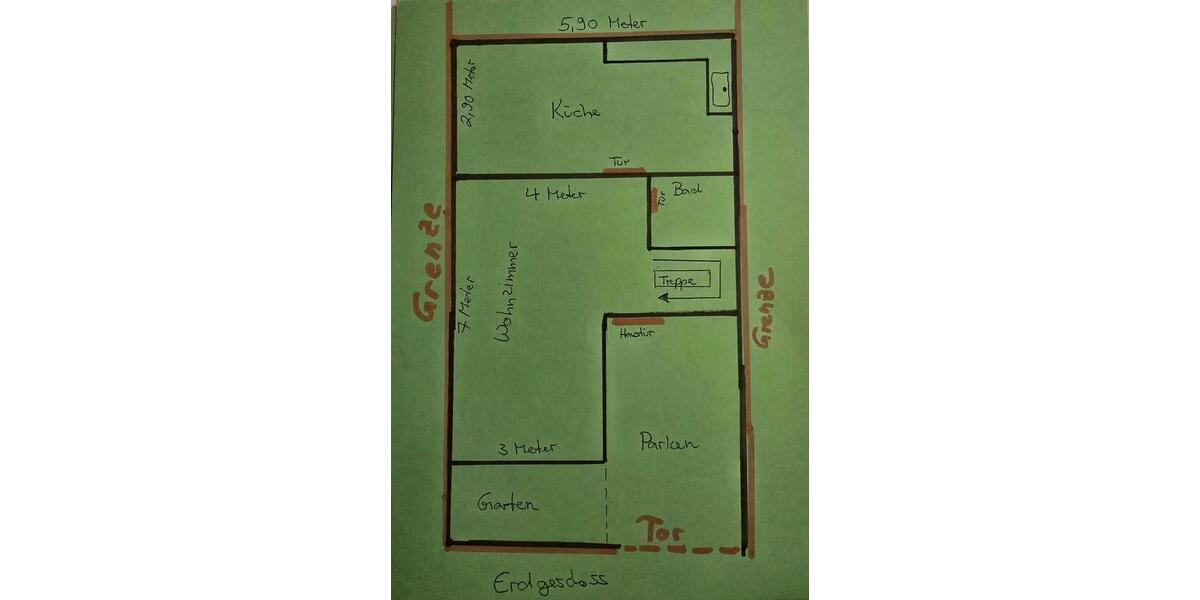 5,90 Meter
2,90 Meter
Küche
Tür
4 Meter
Tür
Bad
Grenze
7 Meter
Wohnzimmer
Treppe
Grenze
Haustür
3 Meter
Parken
Garten
Tor
Erdgeschoss